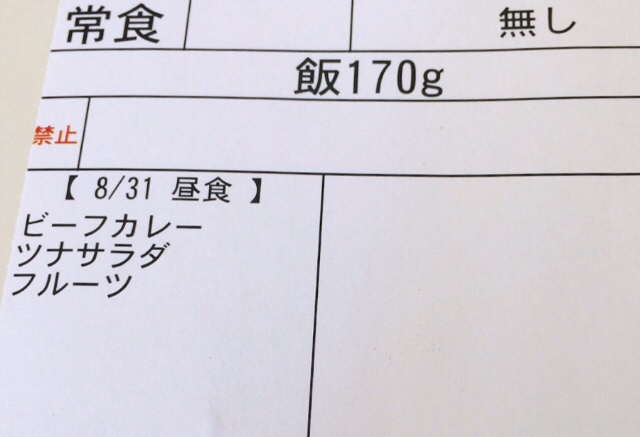 常食 無し
飯170g
禁止
【 8/31 昼食 】
ビーフカレー
ツナサラダ
フルーツ